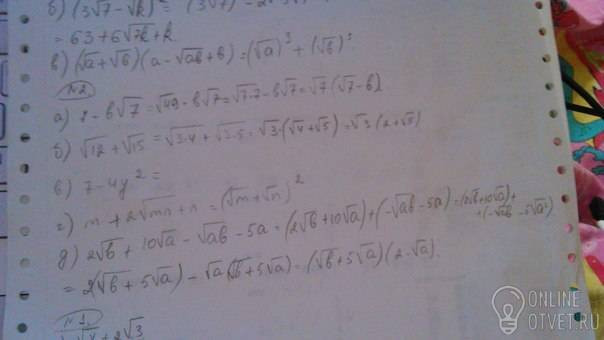 б) (3√7 - √k)² = (3√7)² - 2·3√7
= 63 + 6√7k + k
в) (√a + √b)(a - √ab + b) = (√a)³ + (√b)³
№2
а) 7 - b√7 = √49 - b√7 = √7·7 - b√7 = √7(√7 - b)
б) √12 + √15 = √3·4 + √3·5 = √3·(√4 + √5) = √3(2 + √5)
в) 7 - 4y² =
г) m + 2√mn + n = (√m + √n)²
д) 2√b + 10√a - √ab - 5a = (2√b + 10√a) + (-√ab - 5a) = (2√b + 10√a) +
+ (-√ab - 5√a²)
= 2(√b + 5√a) - √a(√b + 5√a) = (√b + 5√a)(2 - √a).
№3.
+ 2√3
ONLINE
OTVET.RU